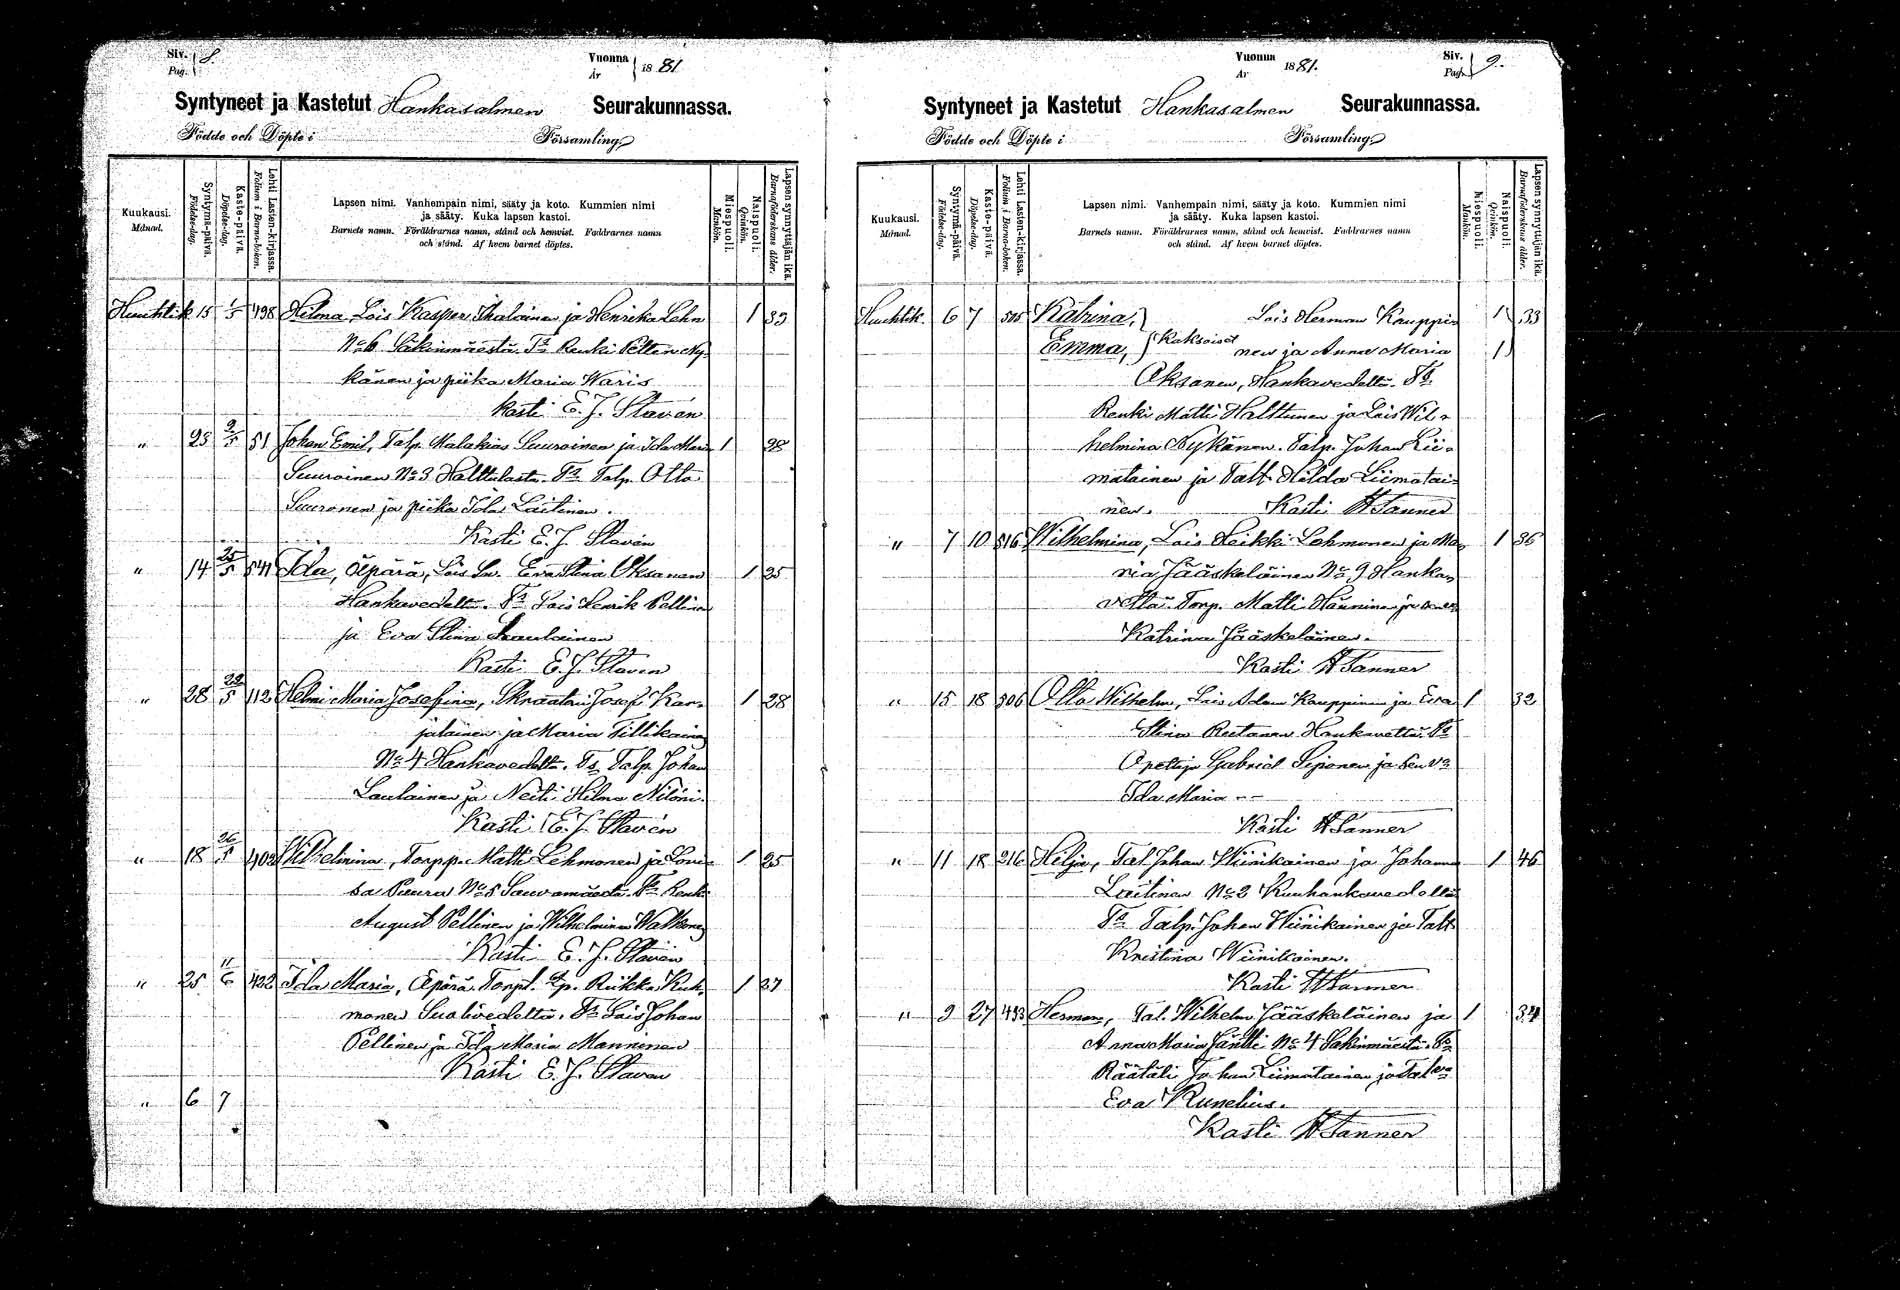 Siv. 8.
Pag.
Vuonna 1881
År
Syntyneet ja Kastetut Hankasalmen Seurakunnassa.
Födde och Döpte i Församling
Kuukausi.
Månad.
Syntymä-päivä.
Födelse-dag.
Kaste-päivä.
Döpelse-dag.
Lehti Lasten-kirjassa.
Folium i Barna-boken.
Lapsen nimi. Vanhempain nimi, sääty ja koto. Kummien nimi
ja sääty. Kuka lapsen kastoi.
Barnets namn. Föräldrarnes namn, stånd och hemvist. Faddrarnes namn
och stånd. Af hvem barnet döptes.
Miespuoli.
Mankön.
Naispuoli.
Qvinkön.
Lapsen synnyttäjän ikä.
Barnaföderskans ålder.
Huuhtik 15 1/5 498 Hilma, Lois Kasper Ihalainen ja Henrika Lehn 1 39
No 6 Säkinmäestä. Ts Renki Petter Ny-
känen ja piika Maria Waris
Kasti E. J. Stavén
" 23 2/5 51 Johan Emil, Talp. Malakias Suuroinen ja Ida Maria 1 28
Suuroinen No 3 Halttulasta. Ts Talp. Otto
Suuronen ja piika Ida Laitinen.
Kasti E. J. Stavén
" 14 25/5 541 Ida, Äpärä, Lois Lw. Eva Stina Oksanen 1 25
Hankavedeltä. Ts Lois Henrik Pellinen
ja Eva Stina Laulainen
Kasti E. J. Stavén
" 28 22/5 112 Helmi Maria Josefina, Skraatari Josef Kar- 1 28
jalainen ja Maria Tillikainen
No 4 Hankavedeltä. Ts Talp. Johan
Laulainen ja Neiti Hilma
Kasti E. J. Stavén
" 18 26/5 402 Wilhelmina, Torpp. Matti Lehmonen ja Lovi- 1 25
sa Puura No 5 Sauvamäestä. Ts Renki
August Pellinen ja Wilhelmina Watkonen
Kasti E. J. Stavén
" 25 11/6 422 Ida Maria, Äpärä. Torpt. Riikka Kuh- 1 27
monen Sualivedeltä. Ts Lois Johan
Pellinen ja Ida Maria Manninen
Kasti E. J. Stavén
" 6 7
Vuonna 1881.
År
Siv. 9.
Pag.
Syntyneet ja Kastetut Hankasalmen Seurakunnassa.
Födde och Döpte i Församling
Kuukausi.
Månad.
Syntymä-päivä.
Födelse-dag.
Kaste-päivä.
Döpelse-dag.
Lehti Lasten-kirjassa.
Folium i Barna-boken.
Lapsen nimi. Vanhempain nimi, sääty ja koto. Kummien nimi
ja sääty. Kuka lapsen kastoi.
Barnets namn. Föräldrarnes namn, stånd och hemvist. Faddrarnes namn
och stånd. Af hvem barnet döptes.
Miespuoli.
Mankön.
Naispuoli.
Qvinkön.
Lapsen synnyttäjän ikä.
Barnaföderskans ålder.
Huuhtik. 6 7 505 Katrina, Lois Herman Kauppi- 1 33
Emma, Kaksoiset nen ja Anna Maria 1
Oksanen, Hankavedeltä. Ts
Renki Matti Halttunen ja Lois Wil-
helmina Nykänen. Talp. Johan Lii-
matainen ja Talt. Hilda Liimatai-
nen. Kasti H Tanner
" 7 10 516 Wilhelmina, Lois Heikki Lehmonen ja Ma- 1 36
ria Jääskeläinen No 9 Hanka-
veltä. Torp. Matti Hänninen ja
Katrina Jääskeläinen.
Kasti H Tanner
" 15 18 506 Otto Wilhelm, Lois Adam Kauppinen ja Eva 1 32
Stina Rutanen Hankaveltä. Ts
Gabriel Siponen ja sen va
Ida Maria --
Kasti H Tanner
" 11 18 216 Hilja, Tal. Johan Wiinikainen ja Johanna 1 46
Laitinen No 2 Kuuhankavedeltä
Ts Talp. Johan Wiinikainen ja Talt.
Kristina Wiinikainen.
Kasti H Tanner
" 9 27 493 Herman, Tal. Wilhelm Jääskeläinen ja 1 34
Anna Maria Jäntti No 4 Säkinmäestä. Ts
Räätäli Johan Liimatainen ja Tal va
Eva Runelius.
Kasti H Tanner